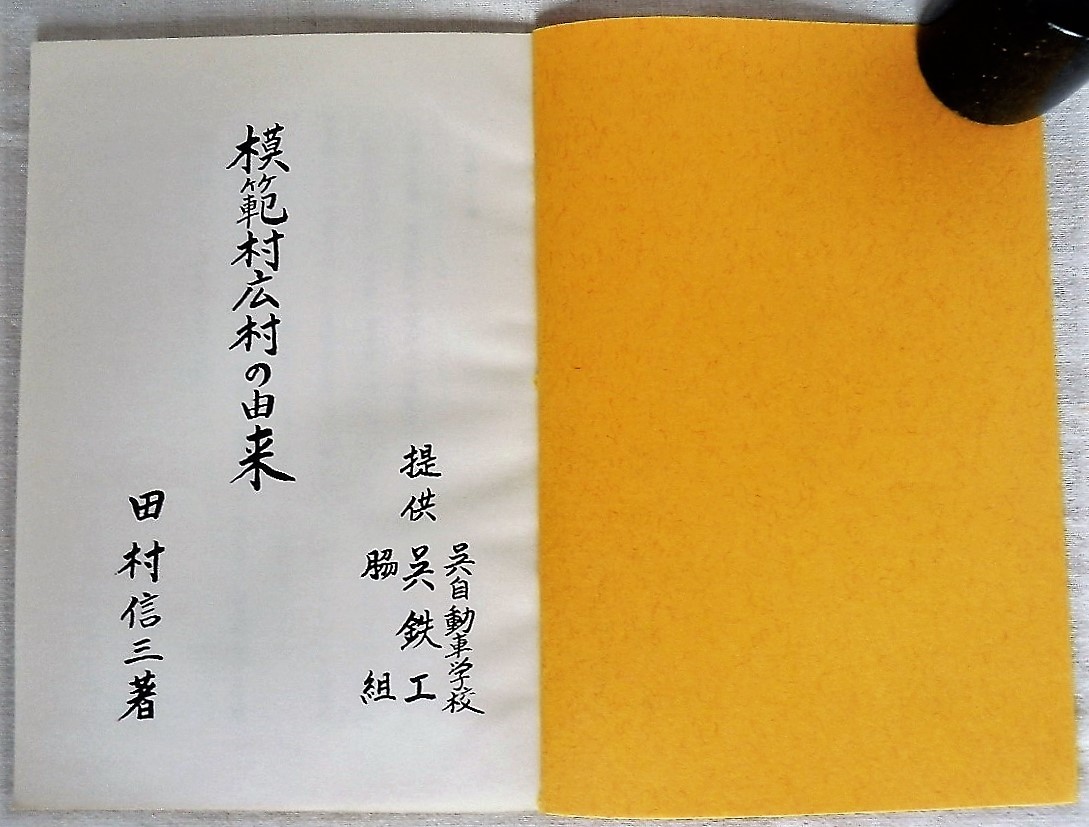 提供
呉自動車学校
呉鉄工
脇組
模範村広村の由来
田村信三著